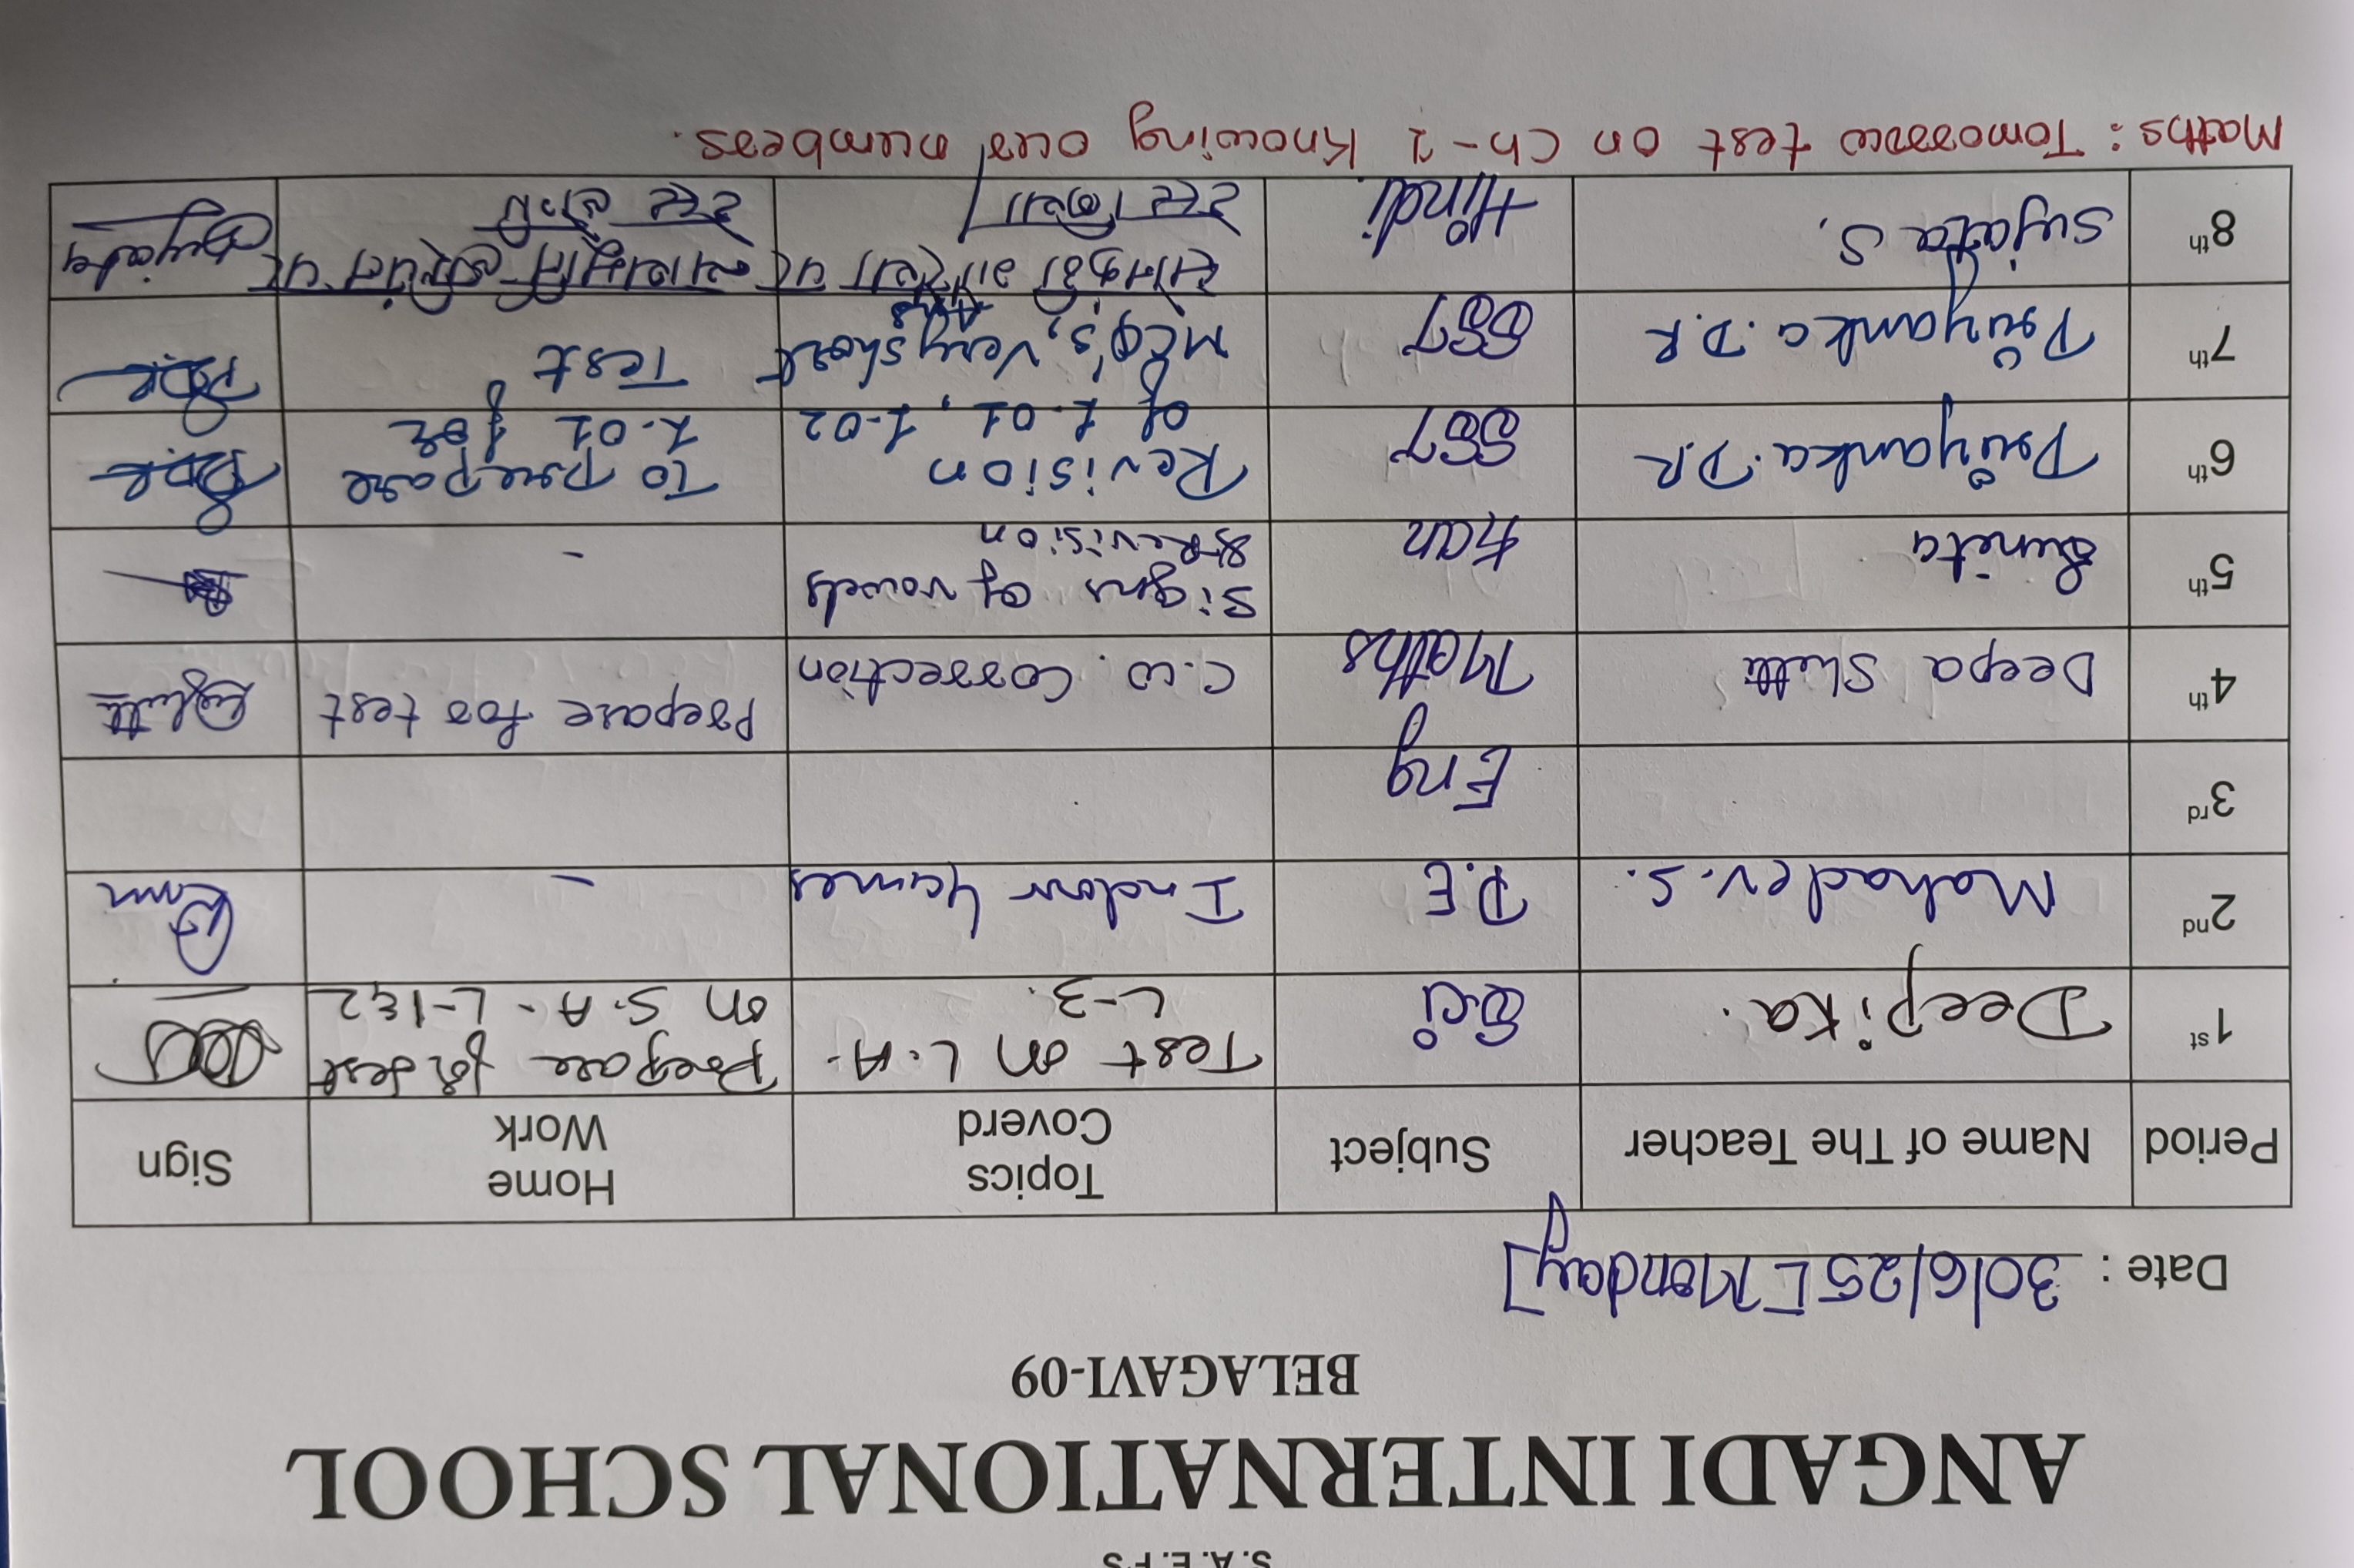 S.A.E.F'S
ANGADI INTERNATIONAL SCHOOL
BELAGAVI-09
Date : 30/6/25 [Monday]
Period Name of The Teacher Subject Topics Coverd Home Work Sign
1st Deepika. Sci Test on L.A. L-3. Prepare for test on S.A. L-1&2
2nd Mahadev.S. P.E Indoor Games -
3rd Eng
4th Deepa Shetti Maths C.W. Correction Prepare for test
5th Sunita Kan Signs of vowels & Revision -
6th Priyanka.D.R SST Revision of 1.01, 1.02 To Prepare 1.01 for
7th Priyanka.D.R SST MCQ's, Very short Ans Test
8th Sujata S. Hindi Sujata
Maths: Tomorrow test on Ch-1 Knowing our numbers.